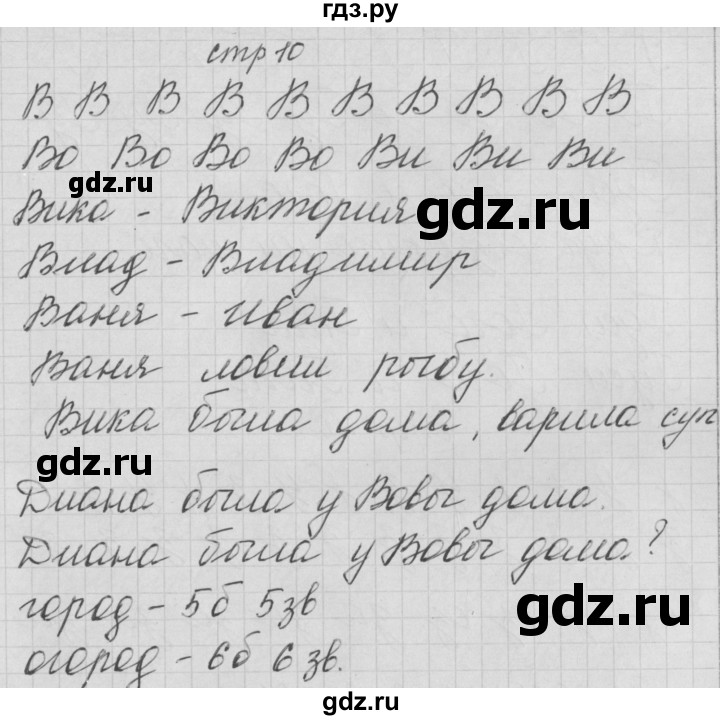 гдз.ру
стр 10
В В В В В В В В В В
Во Во Во Во Ви Ви Ви
gdz.ru
Вика - Виктория
gdz.ru
Влад - Владимир
Ваня - Иван
Ваня ловил рыбу.
Вика была дома, варила суп
gdz.ru
Диана была у Вовы дома.
Диана была у Вовы дома?
город - 5б 5зв
gdz.ru
огород - 6б 6 зв.
gdz.ru